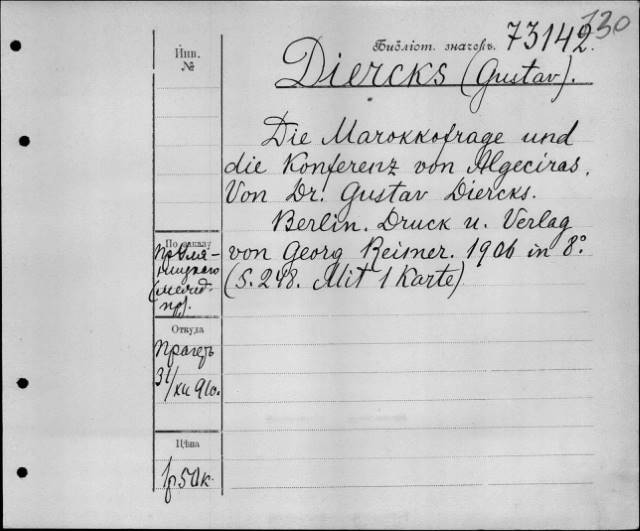 330
Библіот. значекъ. 73142.
Инв.
№
Diercks (Gustav).
Die Marokkofrage und
die Konferenz von Algeciras.
Von Dr. Gustav Diercks.
Berlin. Druck u. Verlag
von Georg Reimer. 1906 in 8°
(S. 248. Mit 1 Karte)
По заказу
пр.
пр).
Откуда
Прагеръ
31/XII
Цѣна
1р50к